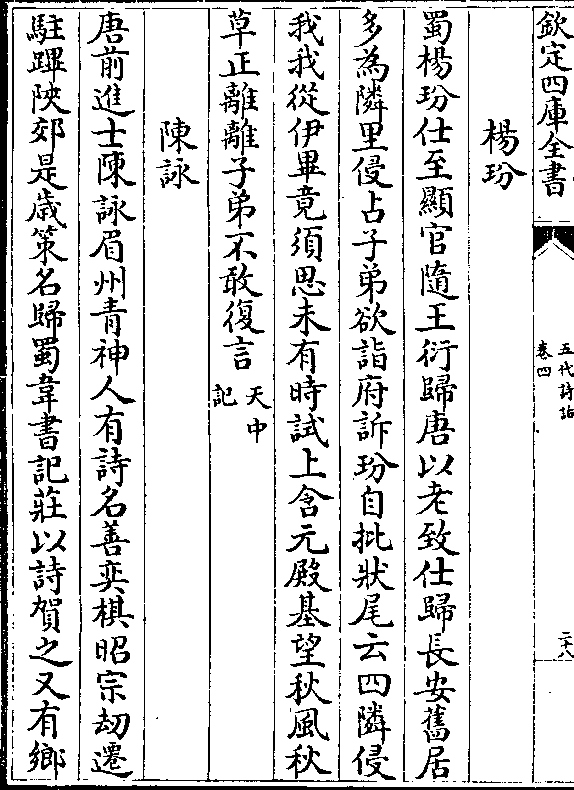 欽定四庫全書
五代詩話
卷四
二十八
楊玢
蜀楊玢仕至顯官隨王衍歸唐以老致仕歸長安舊居
多為隣里侵占子弟欲詣府訴玢自批狀尾云四隣侵
我我從伊畢竟須思未有時試上含元殿基望秋風秋
草正離離子弟不敢復言天中記
陳詠
唐前進士陳詠眉州青神人有詩名善奕棋昭宗刼遷
駐蹕陜郊是歲策名歸蜀韋書記莊以詩賀之又有鄉